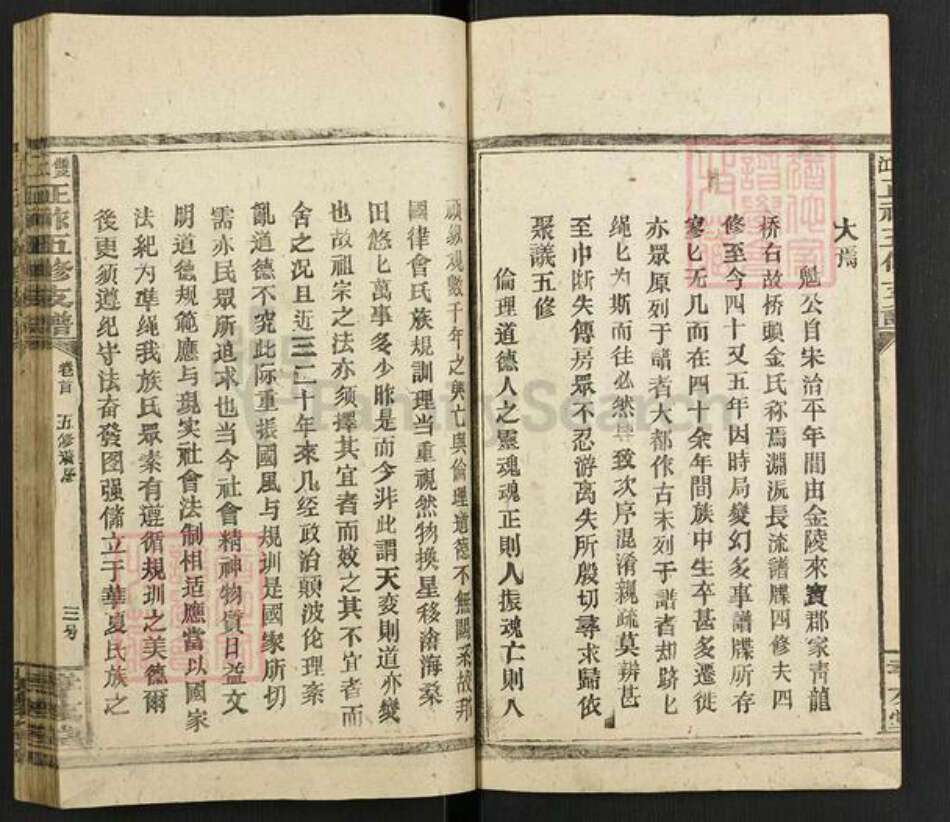 大焉
魁公自宋治平年間由金陵來寳郡家靑龍
桥右故桥頭金氏称焉淵源長流譜牒四修夫四
修至今四十又五年因時局變幻多事譜牒所存
寥匕无几而在四十余年間族中生卒甚多遷徙
亦眾原列于譜者大都作古未列于譜者却跻匕
绳匕为斯而往必然致次序混淆親疏莫辨甚
至巾断失傳房眾不忍游离失所殷切尋求歸依
聚議五修
倫理道德人之靈魂魂正則人振魂亡則人
頑纵观數千年之興亡與倫理道德不無關系故邦
國律會氏族規訓理当重視然物換星移滄海桑
田悠匕萬事多少昨是而今非此謂天変則道亦變
也故祖宗之法亦须擇其宜者而效之其不宜者而
舍之况且近三二十年來几经政治顛波伦理紊
亂道德不究此际重振國風与規训是國家所切
需亦民眾所追求也当今社會精神物質日益文
明道德規範應与現实社會法制相适應當以國家
法紀为準绳我族氏眾素有遵循規训之美德爾
後更须遵纪守法奋發图强儲立于華夏氏族之
雙江正祿五修支譜
卷首
三号
Family Search